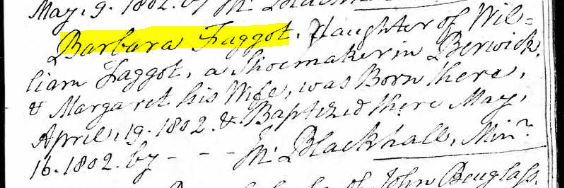 May, 9. 1802. by Mr. Blackhall
Barbara Faggot, Daughter of Wil=
liam Faggot, a Shoemaker in Berwick,
& Margaret his Wife, was Born there,
April, 19. 1802. & Baptized there May,
16. 1802. by - - - Mr. Blackhall, Minr.
of John Douglass